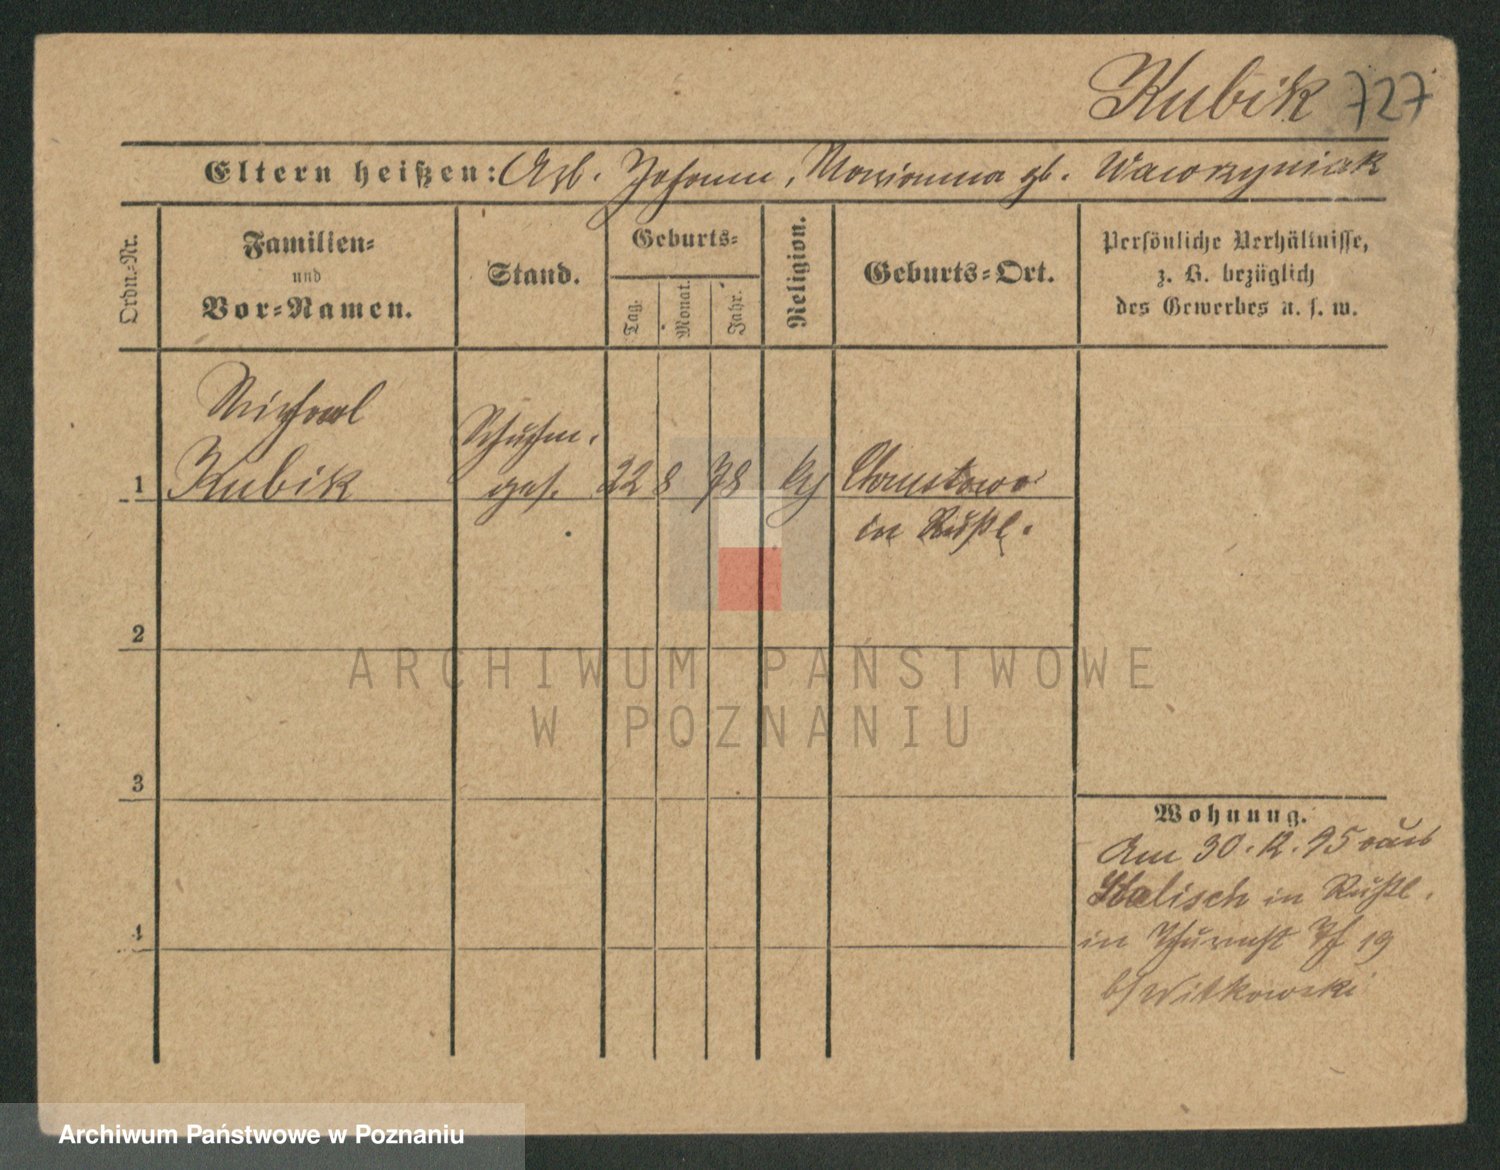 Kubik 727
Eltern heißen: Arb. Johann, Marianna gb. Wawrzyniak
Ordn.-Nr.
Familien-
und
Vor-Namen.
Stand.
Geburts-
Tag.
Monat.
Jahr.
Religion.
Geburts-Ort.
Persönliche Verhältnisse,
z. B. bezüglich
des Gewerbes u. s. w.
Michael
Schuhm.
1 Kubik ges. 22 8 78
in Rußl.
2
3
4
Wohnung.
Am 30. 12. 95 aus
Kalisch in Rußl.
in 19
b/ Witkowski
ARCHIWUM PAŃSTWOWE
W POZNANIU
Archiwum Państwowe w Poznaniu